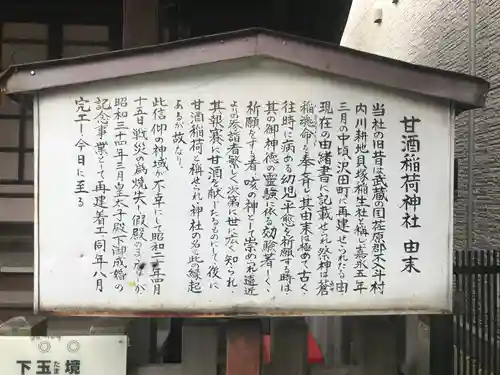 甘酒稲荷神社 由来
当社の旧昔は武蔵の国荏原郡不入斗村
内川耕地貝塚稲生社と称し嘉永五年
三月の中頃沢田町に再建せられたる由
現在の由緒書に記載せられ祭神は蒼
稲魂命を奉斉し其由来は極めて古く
往時に病める幼児平癒を祈願する時は
其の御神徳の霊験に依る効験著しく
祈願をする者咳の神として崇められ遠近
よりの参詣者繁しく次第に世に広く知られ
其報賽に甘酒を献じたるものにして後に
甘酒稲荷と称せられ神社の名此縁起
あるが故なり
此信仰の神域が不幸にして昭和二十年四月
十五日戦災の為焼失し仮殿のまゝなりしが
昭和三十四年三月皇太子殿下御成婚の
記念事業として再建着工同年八月
完工し今日に至る
下玉境
たま